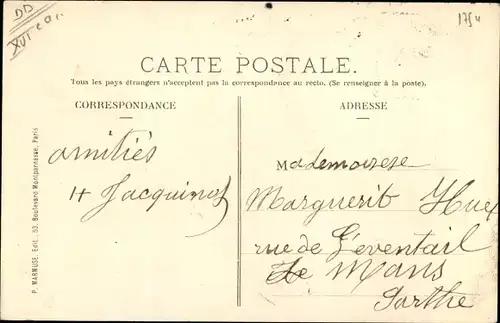 DD
XVI e ar.
1754
CARTE POSTALE.
Tous les pays étrangers n'acceptent pas la correspondance au recto. (Se renseigner à la poste).
CORRESPONDANCE
ADRESSE
P. MARMUSE, Edit., 53, Boulevard Montparnasse, Paris
amitiés
H Jacquinot
Mademoisese
Marguerit Huet
rue de L'eventail
Le Mans
Sarthe